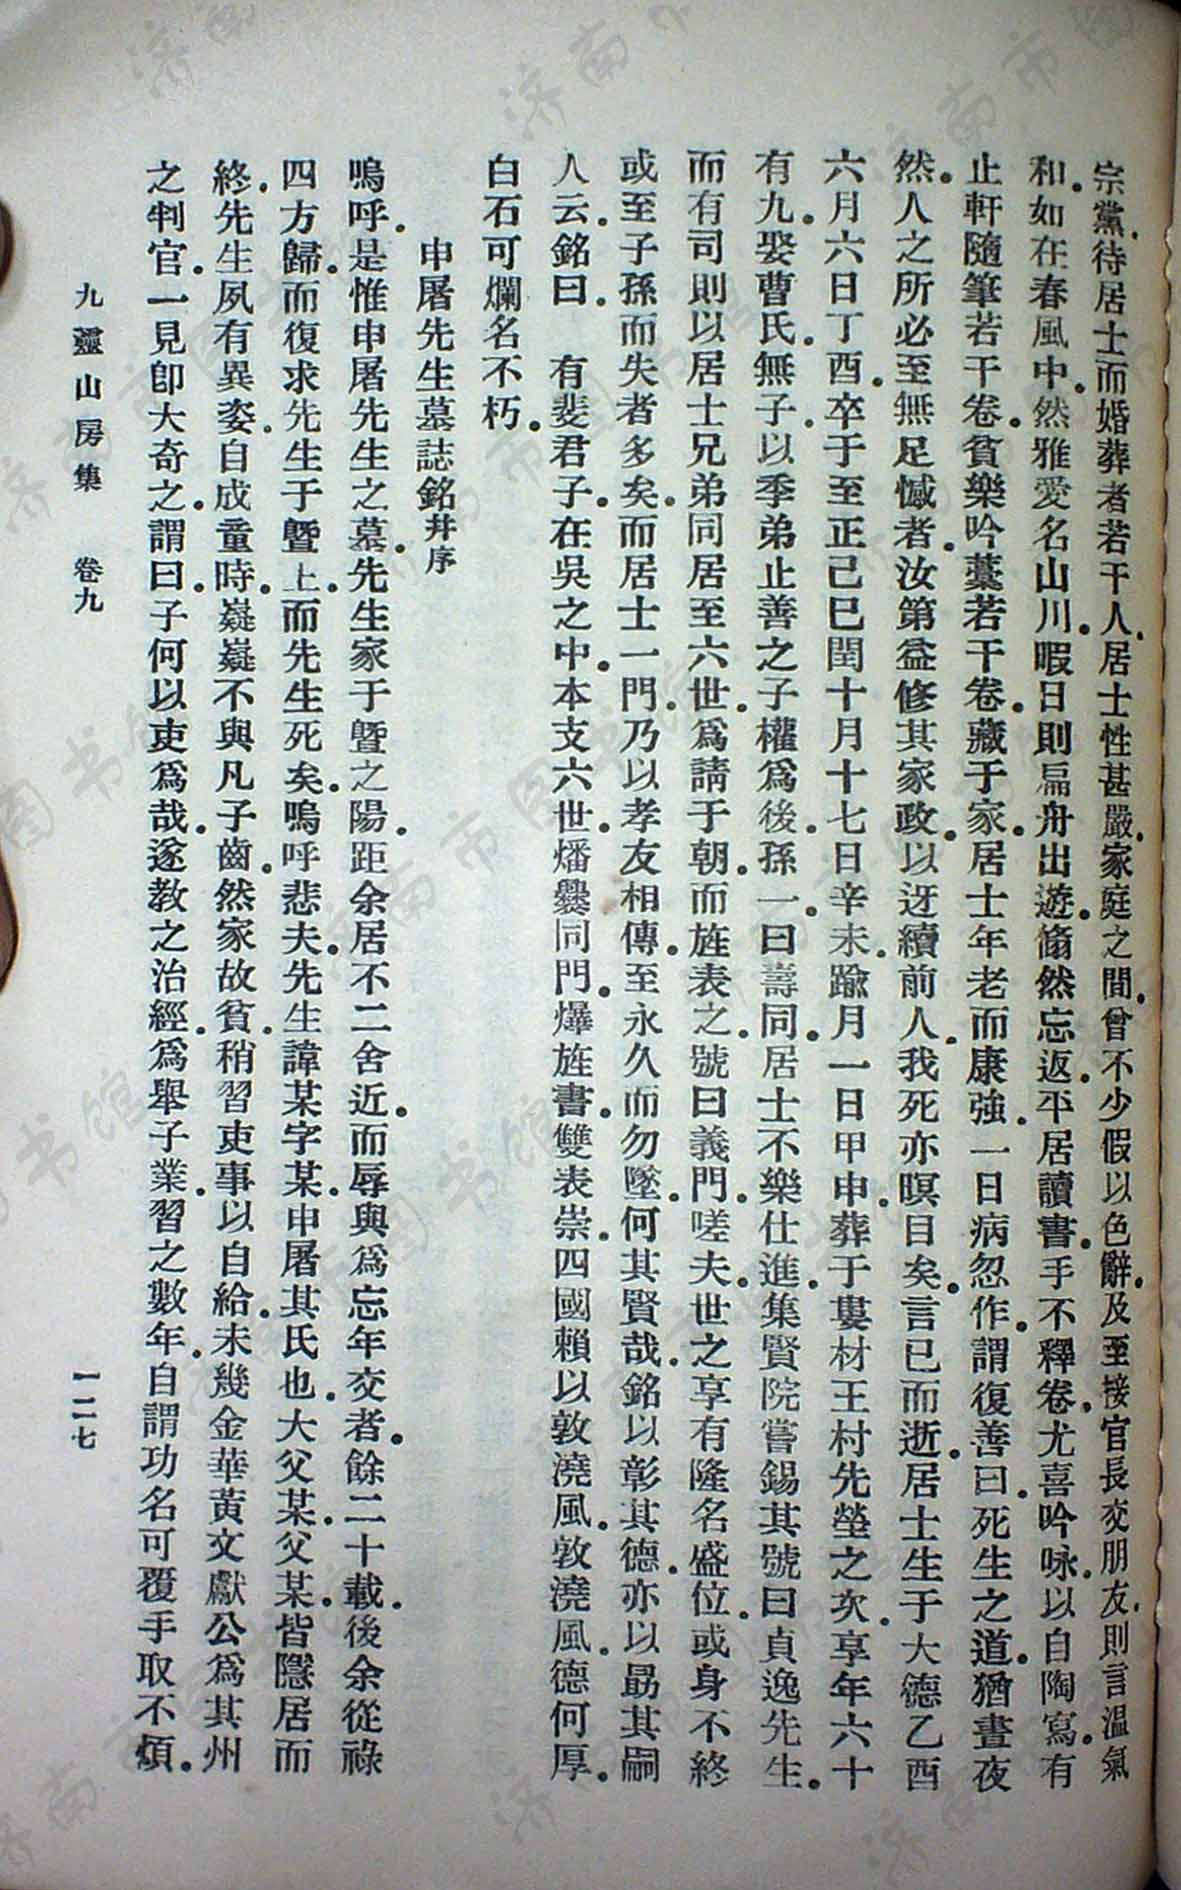 宗黨待居士而婚葬者若干人居士性甚嚴家庭之間曾不少假以色辭及至接官長交朋友則言溫氣
和如在春風中然雅愛名山川暇日則扁舟出遊翛然忘返平居讀書手不釋卷尤喜吟咏以自陶寫有
止軒隨筆若干卷貧樂吟藁若干卷藏于家居士年老而康強一日病忽作謂復善曰死生之道猶晝夜
然人之所必至無足憾者汝第益修其家政以迓續前人我死亦暝目矣言已而逝居士生于大德乙酉
六月六日丁酉卒于至正己巳閏十月十七日辛未踰月一日甲申葬于婁材王村先塋之次享年六十
有九娶曹氏無子以季弟止善之子權爲後孫一曰壽同居士不樂仕進集賢院嘗錫其號曰貞逸先生
而有司則以居士兄弟同居至六世爲請于朝而旌表之號曰義門嗟夫世之享有隆名盛位或身不終
或至子孫而失者多矣而居士一門乃以孝友相傳至永久而勿墜何其賢哉銘以彰其德亦以勗其嗣
人云銘曰　有斐君子在吳之中本支六世燔爨同門爆旌書雙表崇四國賴以敦澆風敦澆風德何厚
白石可爛名不朽
申屠先生墓誌銘幷序
嗚呼是惟申屠先生之墓先生家于曁之陽距余居不二舍近而辱與爲忘年交者餘二十載後余從祿
四方歸而復求先生于曁上而先生死矣嗚呼悲夫先生諱某字某申屠其氏也大父某父某皆隱居而
終先生夙有異姿自成童時嶷嶷不與凡子齒然家故貧稍習吏事以自給未幾金華黃文獻公爲其州
之判官一見卽大奇之謂曰子何以吏爲哉遂教之治經爲舉子業習之數年自謂功名可覆手取不煩
九靈山房集　卷九
一二七
济南市图书馆